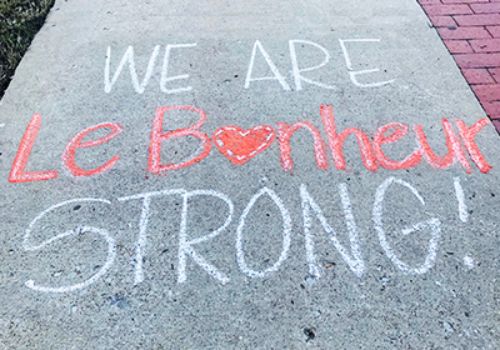 WE ARE
Le Bonheur
STRONG!